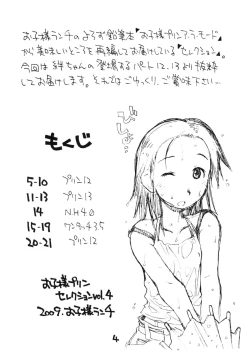 お子様ランチのよろず鉛筆本「お子様プリン・ア・ラ・モード」
から美味しいところを再編してお届けしている「セレクション」。
今回は鮮ちゃんの登場するパート12、13より抜粋
してお届けします。それではごゆっくり、ご賞味下さい〜
もくじ
5-10 プリン12
11-13 プリン13
14 NH40
15-19 ワンタッチ3.5
20-21 プリン12
お子様プリン
セレクションvol.4
2009.お子様ランチ
4